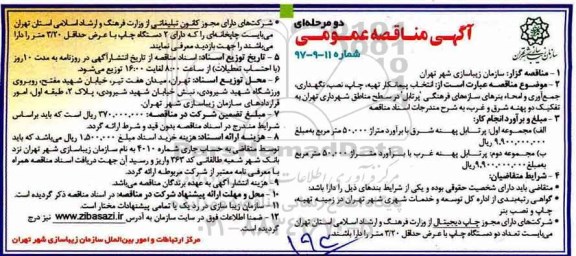 دو مرحله‌ای
آگهی مناقصه عمومی
شماره ۱۱-۹-۹۷
۱ - مناقصه گزار: سازمان زیباسازی شهر تهران
۲ - موضوع مناقصه عبارت است از: انتخاب پیمانکار تهیه، چاپ، نصب، نگهداری،
جمع‌آوری و امحاء بنرهای سازه‌های فرهنگی پرتابل در سطح مناطق شهرداری تهران به
تفکیک دو پهنه شرق و غرب به شرح مندرجات اسناد مناقصه
۳ - مبلغ و برآورد انجام کار:
الف) مجموعه اول: پرتابل پهنه شرق با برآورد متراژ ۵۰.۰۰۰ متر مربع به‌مبلغ
۹,۹۰۰,۰۰۰,۰۰۰ ریال
ب) مجموعه دوم: پرتابل پهنه غرب با برآورد متراژ ۵۰.۰۰۰ متر مربع
به‌مبلغ ۹,۹۰۰,۰۰۰,۰۰۰ ریال
۴ - شرایط متقاضیان:
• متقاضی باید دارای شخصیت حقوقی بوده و یکی از شرایط بندهای ذیل را دارا باشد:
• گواهی رتبه‌بندی از اداره کل توسعه و خدمات شهری شهر تهران در زمینه تهیه،
چاپ و نصب بنر
• شرکت‌های دارای مجوز چاپ دیجیتال از وزارت فرهنگ و ارشاد اسلامی استان تهران
می‌بایست تعداد دو دستگاه چاپ با عرض حداقل ۳/۲۰ متر را دارا باشند.
• شرکت‌های دارای مجوز کانون تبلیغاتی از وزارت فرهنگ و ارشاد اسلامی استان تهران
می‌بایست چاپخانه‌ای را که دارای ۲ دستگاه چاپ با عرض حداقل ۳/۲۰ متر را دارا
می‌باشند را جهت بازدید معرفی نمایند.
۵ - تاریخ توزیع اسناد: اسناد مناقصه از تاریخ انتشار آگهی در روزنامه به مدت ۱۰ روز
(با احتساب تعطیلات) از ساعت ۸:۰۰ لغایت ۱۶:۰۰ توزیع می‌شود.
۶ - محل توزیع اسناد: تهران، میدان هفت تیر، خیابان شهید مفتح، روبروی
ورزشگاه شهید شیرودی، نبش خیابان شهید شیرودی، پلاک ۲، طبقه اول، امور
قراردادهای سازمان زیباسازی شهر تهران.
۷ - مبلغ تضمین شرکت در مناقصه: ۳۷۰,۰۰۰,۰۰۰ ریال است که باید براساس
شرایط مندرج در اسناد مناقصه بدون قید و شرط ارائه گردد.
۸ - هزینه ارائه اسناد: هزینه خرید اسناد مبلغ ۱,۵۰۰,۰۰۰ ریال می‌باشد که باید
توسط متقاضی به حساب جاری شماره ۴۰۱۰ به نام سازمان زیباسازی شهر تهران نزد
بانک شهر شعبه طالقانی کد ۲۶۳ واریز و رسید آن جهت دریافت اسناد مناقصه همراه
با معرفی‌نامه معتبر از شرکت مربوطه ارائه گردد.
۹ - هزینه انتشار آگهی به عهده برندگان مناقصه می‌باشد.
۱۰ - محل و مهلت ارائه پیشنهاد شرکت در مناقصه: در اسناد مناقصه ذکر گردیده است.
۱۱ - سازمان زیباسازی در رد یک یا تمامی پیشنهادات مختار است.
۱۲ - ضمناً اطلاعات فوق در سایت سازمان به آدرس www.zibasazi.ir نیز درج
گردیده است.
مرکز ارتباطات و امور بین‌الملل سازمان زیباسازی شهر تهران